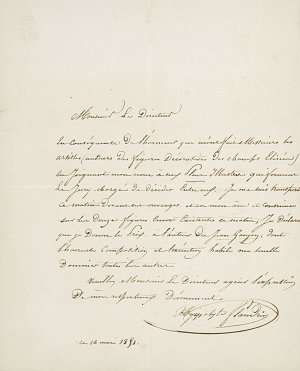 Monsieur Le Directeur
En conséquence de l'honneur que m'ont fait Messieurs les
artistes, auteurs des figures Décoratives des champs Elisées,
en joignant mon nom à ceux
le Jury chargé de décider entre eux, Je me suis transporté
ce matin devant ces ouvrages et en mon âme et conscience
sur les douze figures Je déclare
que je Donne le prix à l'auteur de Jean Goujon, dont
l'heureuse Composition et l'exécution habile me semble
Dominer toute les autres.
Veuillez Monsieur Le Directeur agréer l'expression
De mon respectueux Dévouement
Hyppolyte Flandrin
ce 16 mai 1851.